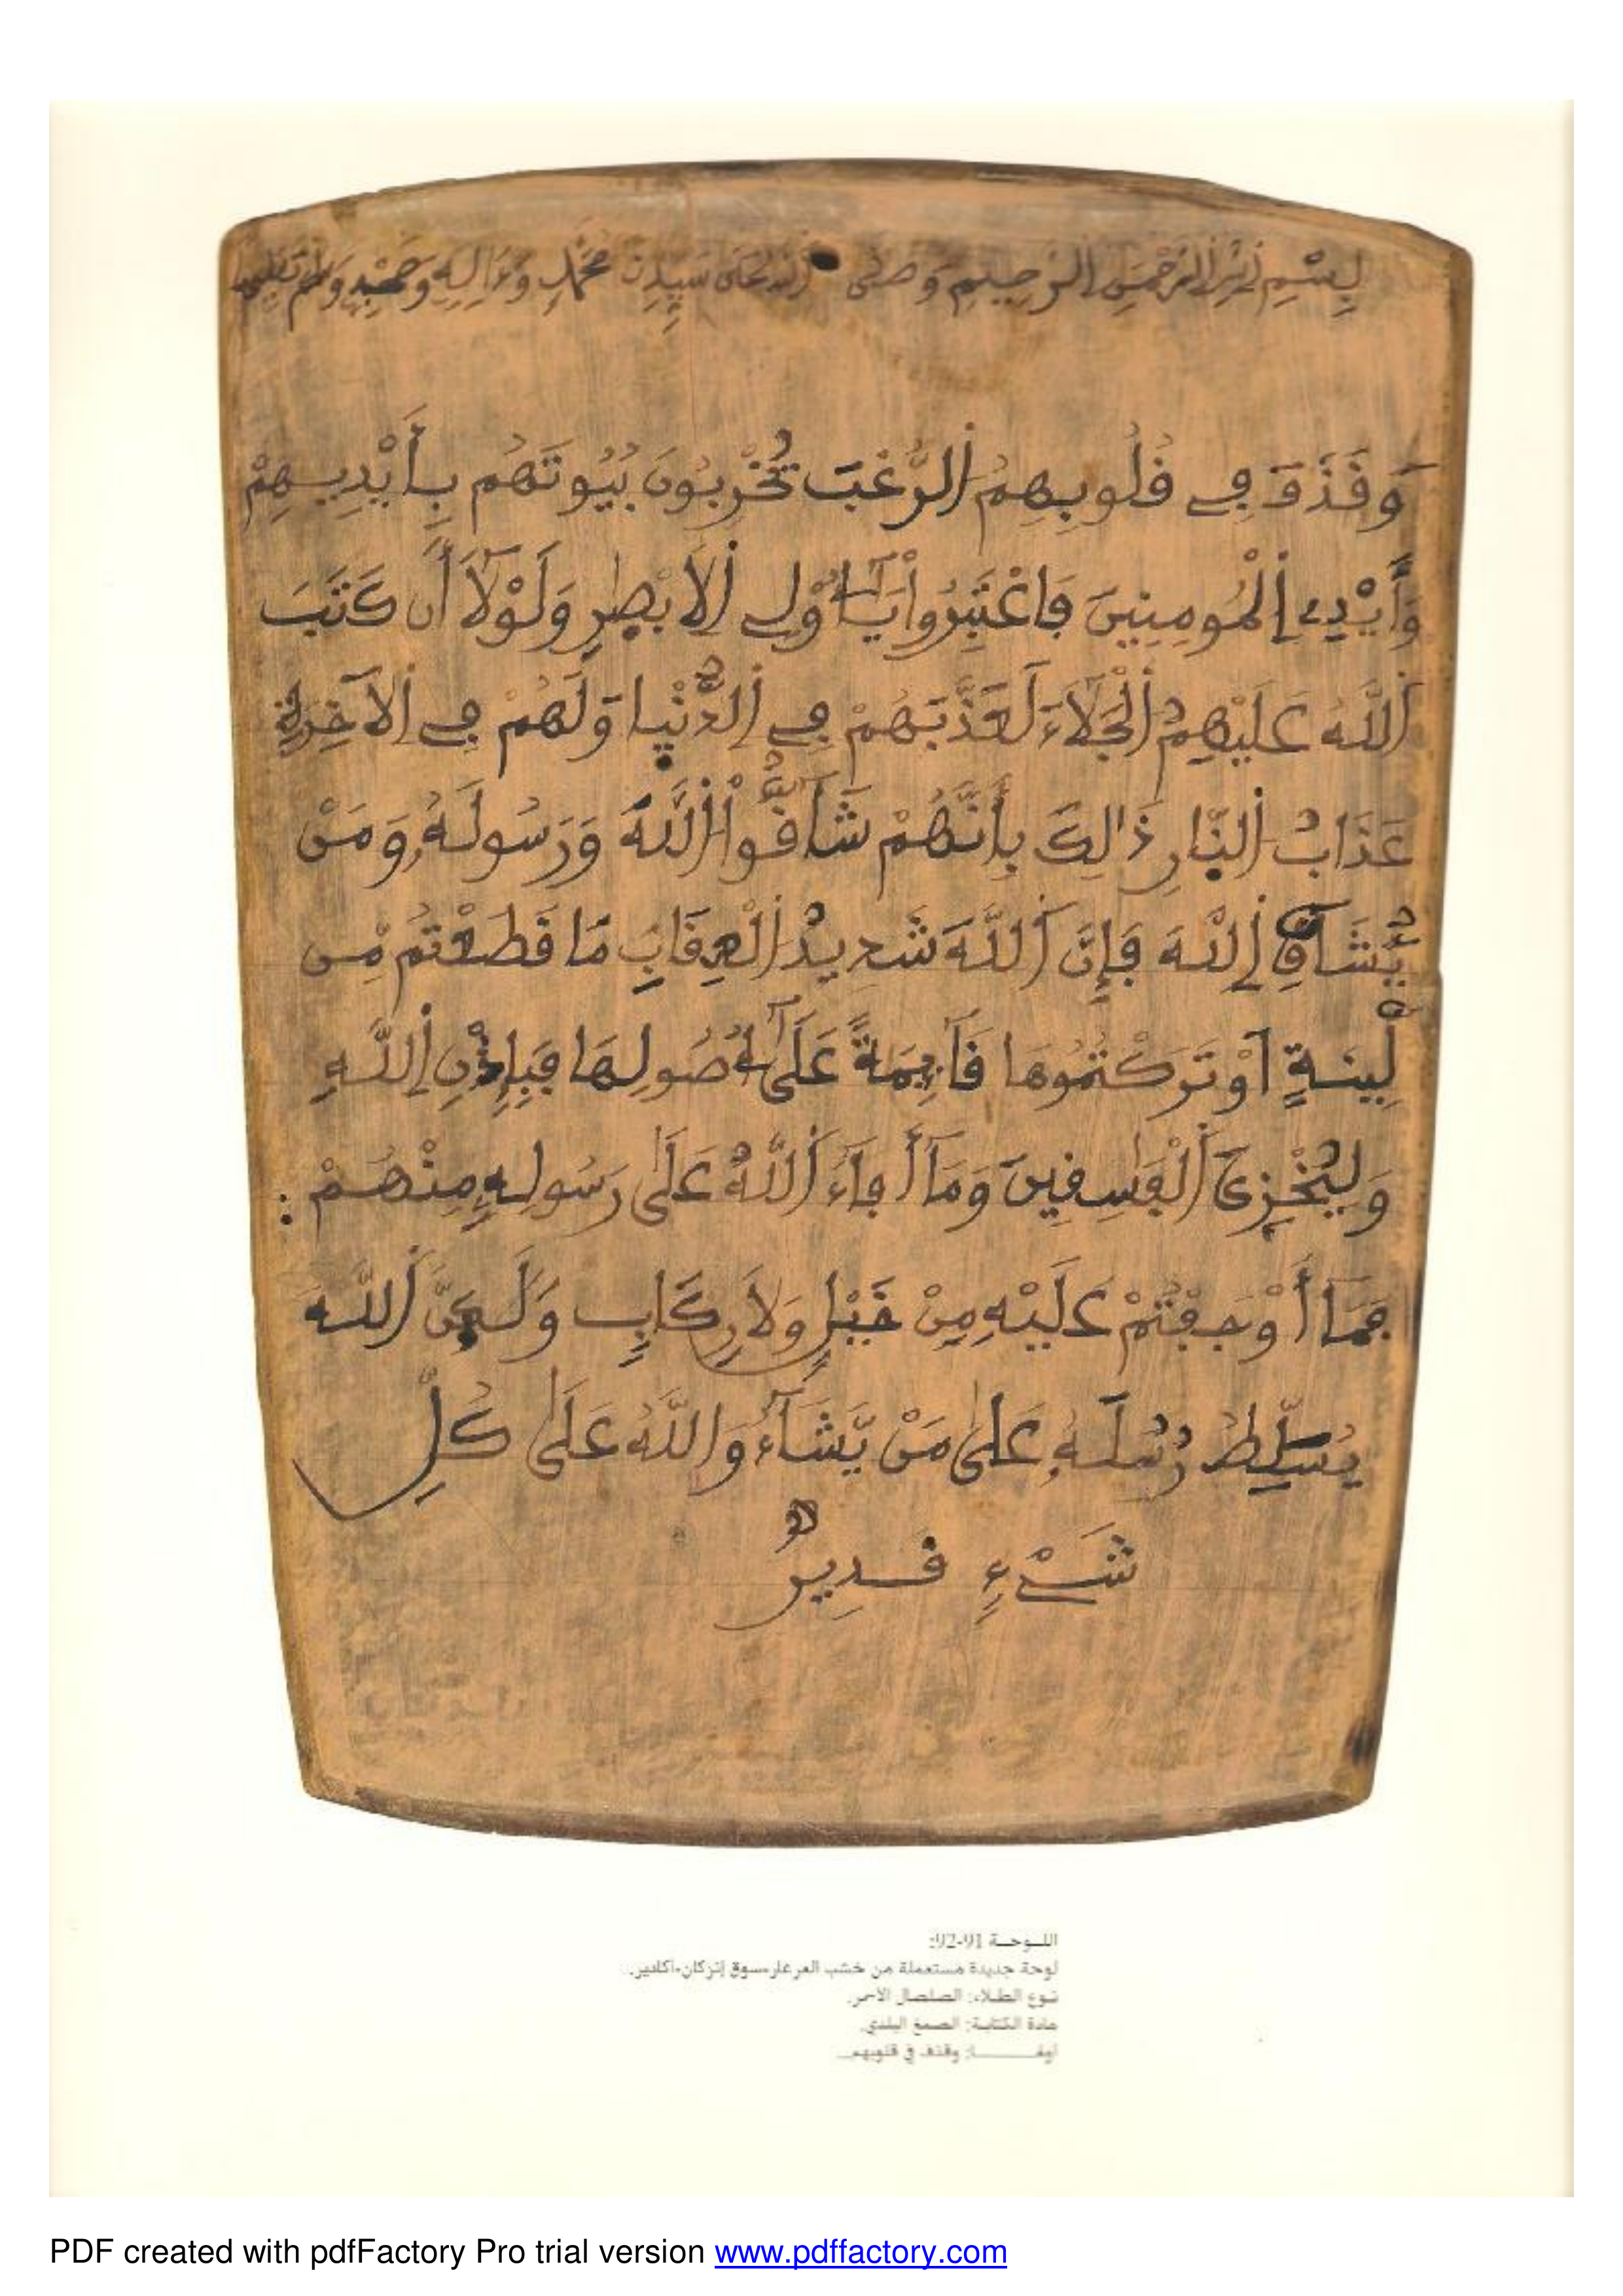 بِسْمِ اللهِ الرَّحْمَنِ الرَّحِيمِ وَصَلَّى اللهُ عَلَى سَيِّدِنَا مُحَمَّدٍ وَءَالِهِ وَصَحْبِهِ وَسَلَّمَ تَسْلِيمًا
وَقَذَفَ فِے قُلُوبِهِمُ اُلرُّعْبَ يُخْرِبُونَ بُيُوتَهُم بِأَيْدِيهِمْ
وَأَيْدِے اِلْمُومِنِينَ فَاعْتَبِرُواْ يَٰٓأُوْلِے اِلَابْصٰرِ وَلَوْلَآ أَن كَتَبَ
اَللَّهُ عَلَيْهِمُ اُلْجَلَآءَ لَعَذَّبَهُمْ فِے اِلدُّنْيَا وَلَهُمْ فِے اِلَاخِرَةِ
عَذَابُ اُلنَّارِ ذَٰلِكَ بِأَنَّهُمْ شَآقُّواْ اُللَّهَ وَرَسُولَهُۥ وَمَنْ
يُّشَآقِّ اِللَّهَ فَإِنَّ اَللَّهَ شَدِيدُ اُلْعِقَابِ مَا قَطَعْتُم مِّن
لِّينَةٍ اَوْ تَرَكْتُمُوهَا قَآئِمَةً عَلَىٰٓ أُصُولِهَا فَبِإِذْنِ اِللَّهِ
وَلِيُخْزِيَ اَلْفَٰسِقِينَ وَمَآ أَفَآءَ اَللَّهُ عَلَىٰ رَسُولِهِۦ مِنْهُمْ :
فَمَآ أَوْجَفْتُمْ عَلَيْهِ مِنْ خَيْلٍ وَلَا رِكَابٍ وَلَٰكِنَّ اَللَّهَ
يُسَلِّطُ رُسُلَهُۥ عَلَىٰ مَنْ يَّشَآءُ وَاللَّهُ عَلَىٰ كُلِّ
شَےْءٍ قَدِيرٌ
اللـوحـة 91-92:
لوحة جديدة مستعملة من خشب العرعار-سوق إنزكان-أكادير.
نـوع الطـلاء: الصلصال الأحمر.
مادة الكتابـة: الصمغ البلدي.
أولهـــــا: وقذف في قلوبهم...
PDF created with pdfFactory Pro trial version www.pdffactory.com